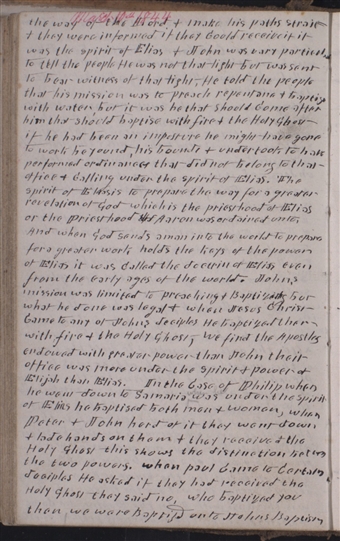 March 10th 1844
the way of the Lord & make his paths strait
& they were informed if they Could receive it it
was the spirit of Elias & John was vary particul
to tell the people He was not that light but was sent
to bear witness of that light, He told the people
that his mission was to preach repentane & baptize
with water, but it was he that should Come after
him that should baptise with fire & the Holy Ghost
if he had been an imposture he might have gone
to work beyound his bounds & undertook to have
performed ordinances that did not belong to that
office & Calling under the spirit of Elias. The
spirit of Elias is to prepare the way for a greater
revelation of God which is the priesthood of Elias
or the Priesthood that Aaron was ordained unto,
And when God sends a man into the world to prepare
for a greater work, holds the keys of the power
of Elias it was Called the doctrin of Elias even
from the early ages of the world. Johns
mission was limited to preaching & Baptizing but
what he done was legal & when Jesus Christ
Came to any of Johns deciples He baptized them
with fire & the Holy Ghost, We find the Apostles
endowed with greater power than John their
office was more under the spirit & power of
Elijah than Elias. In the Case of Philip when
he went down to Samaria was under the spirit
of Elias he baptised both men & woman, when
Peter & John herd of it they went down
& laid hands on them & they received the
Holy Ghost this shows the distinction between
the two powers. when paul Came to Certain
deciples He asked if they had received the
Holy Ghost they said no, who baptized you
then, we were Baptised unto Johns Baptism